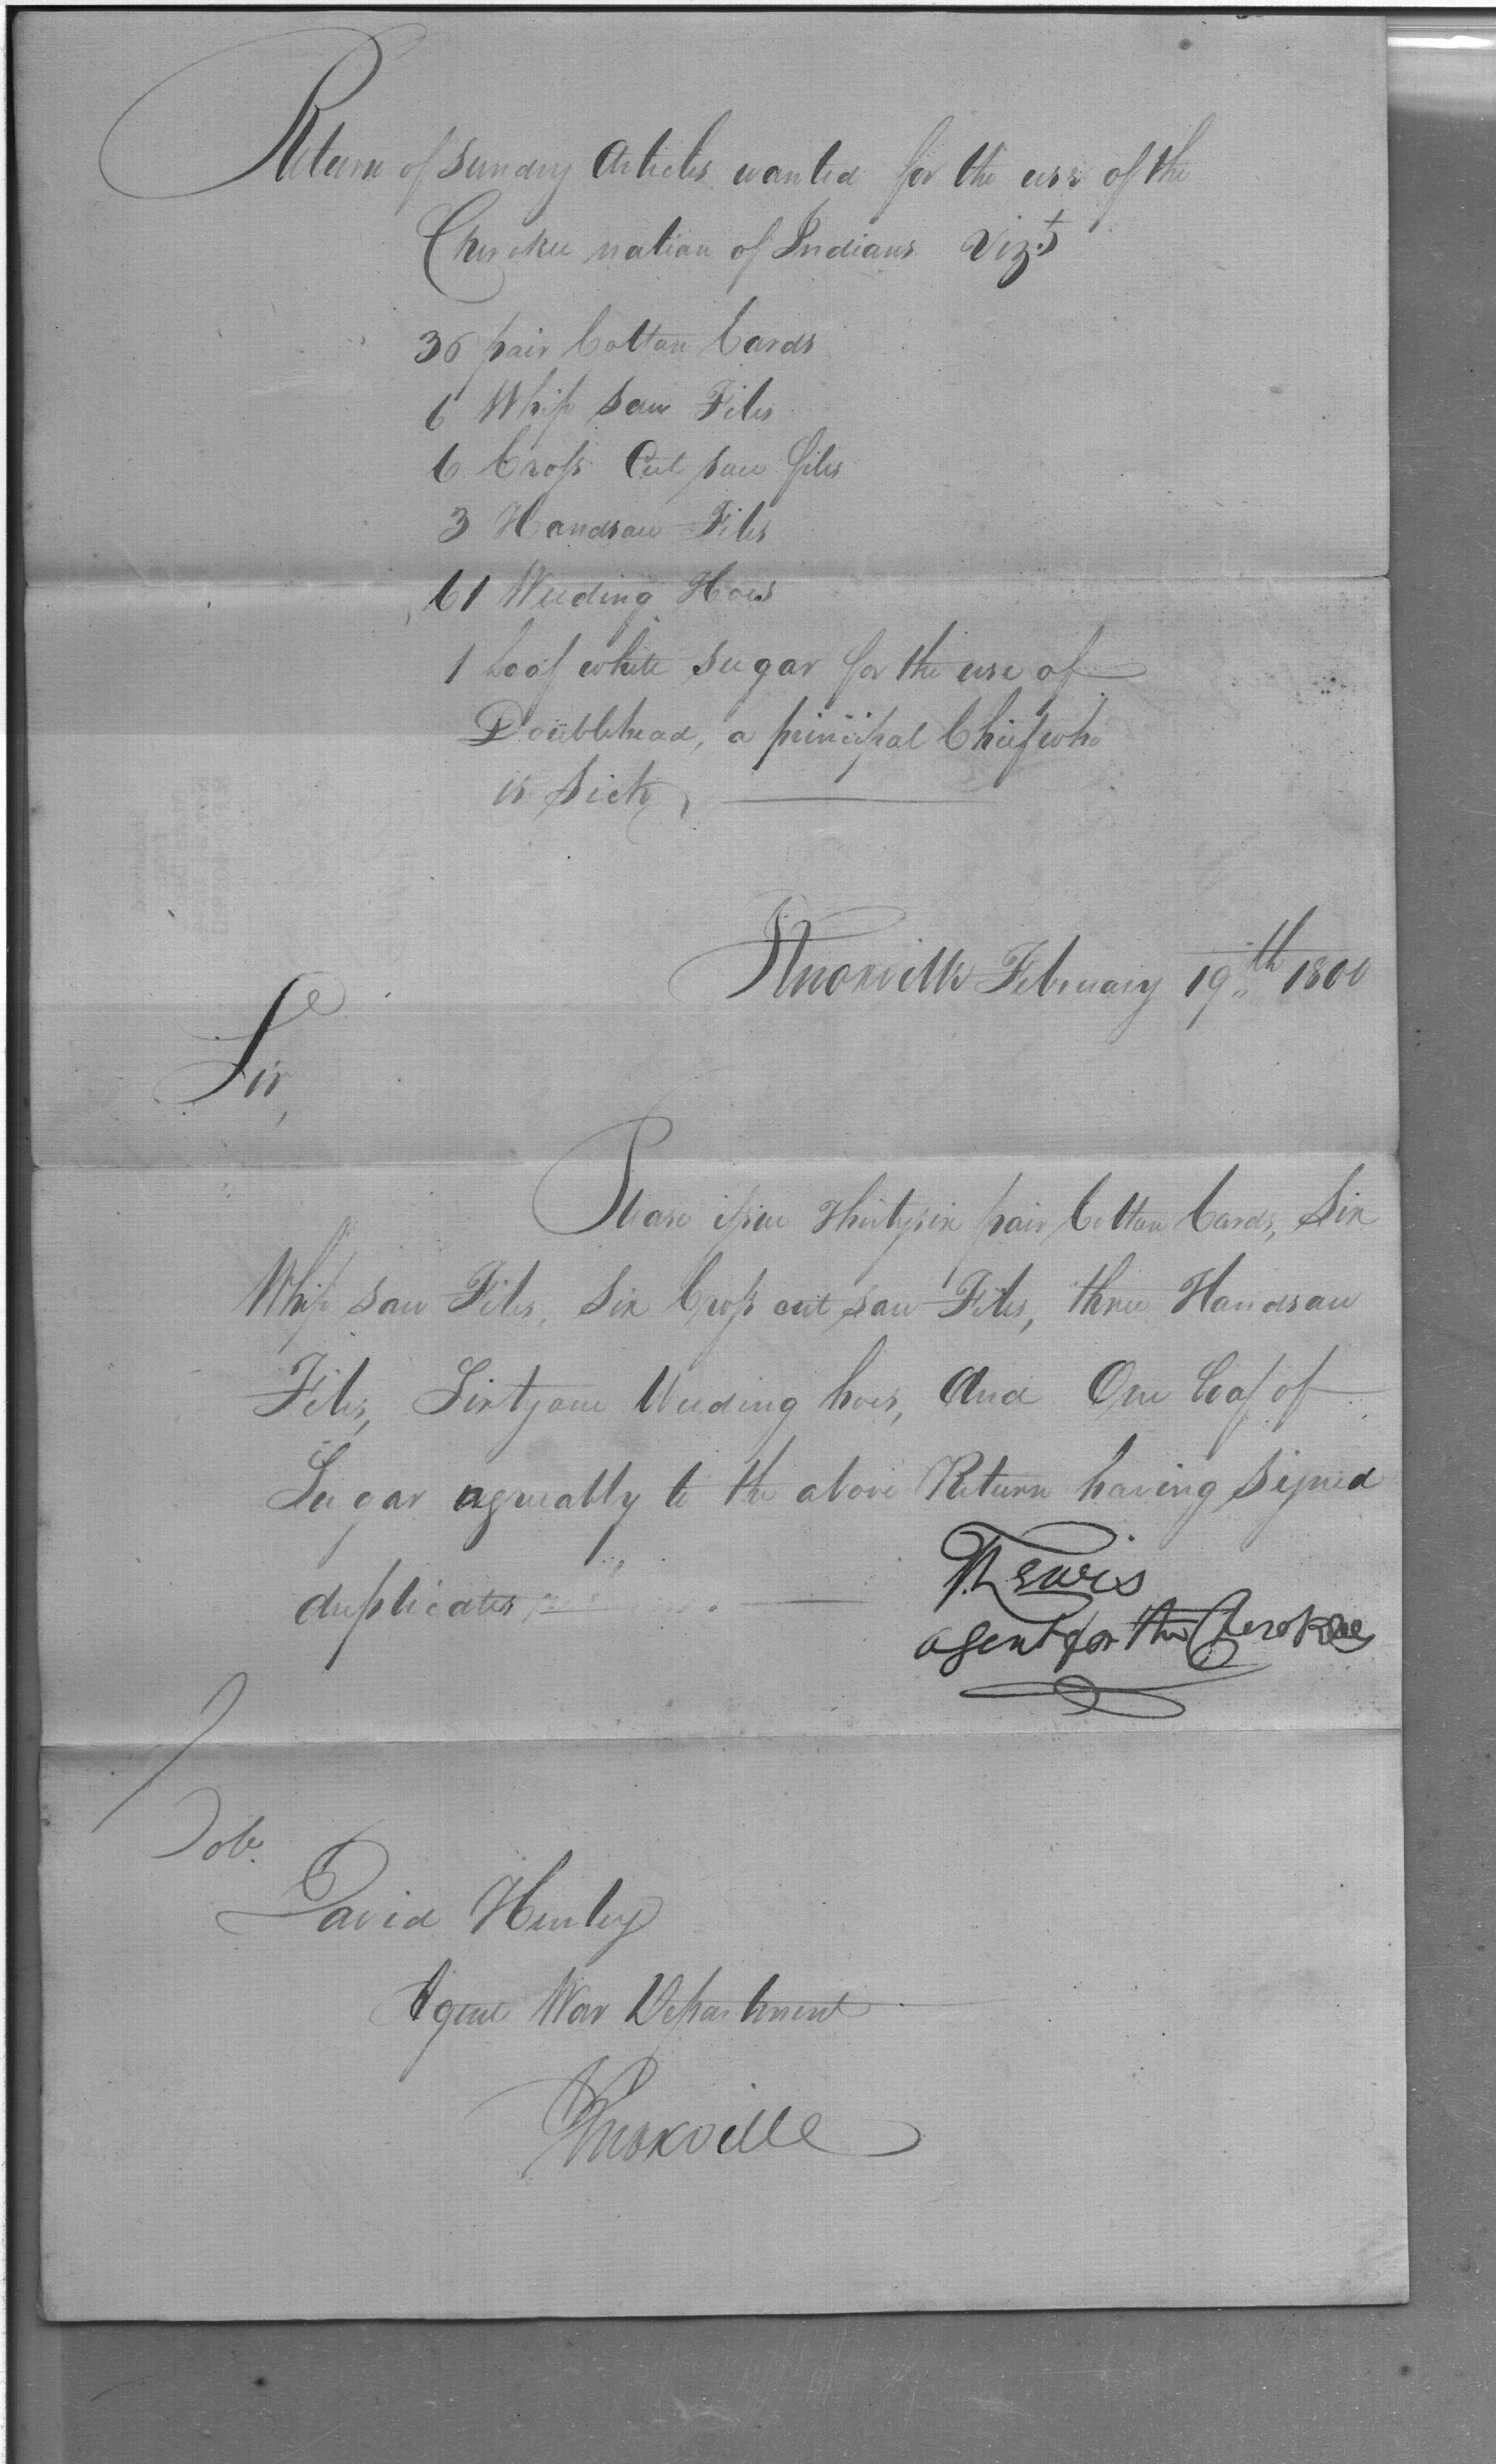 Return of Sundry Articles wanted for the use of the
Cherokee nation of Indians Vizt
36 pair Cotton Cards
6 Whip Saw Files
6 Cross Cut saw files
3 Handsaw Files
61 Weeding Hoes
1 Loaf white Sugar for the use of
Doublehead, a principal Chief who
is Sick,
Knoxville February 19th 1800
Sir,
Please issue Thirtysix pair Cotton Cards, Six
Whip Saw Files, Six Cross cut saw Files, three Handsaw
Files, Sixtyone Weeding hoes, And One Loaf of
Sugar agreeably to the above Return having Signed
duplicates
T. Lewis
agent for the Cherokees
David Henley
Agent War Department
Knoxville